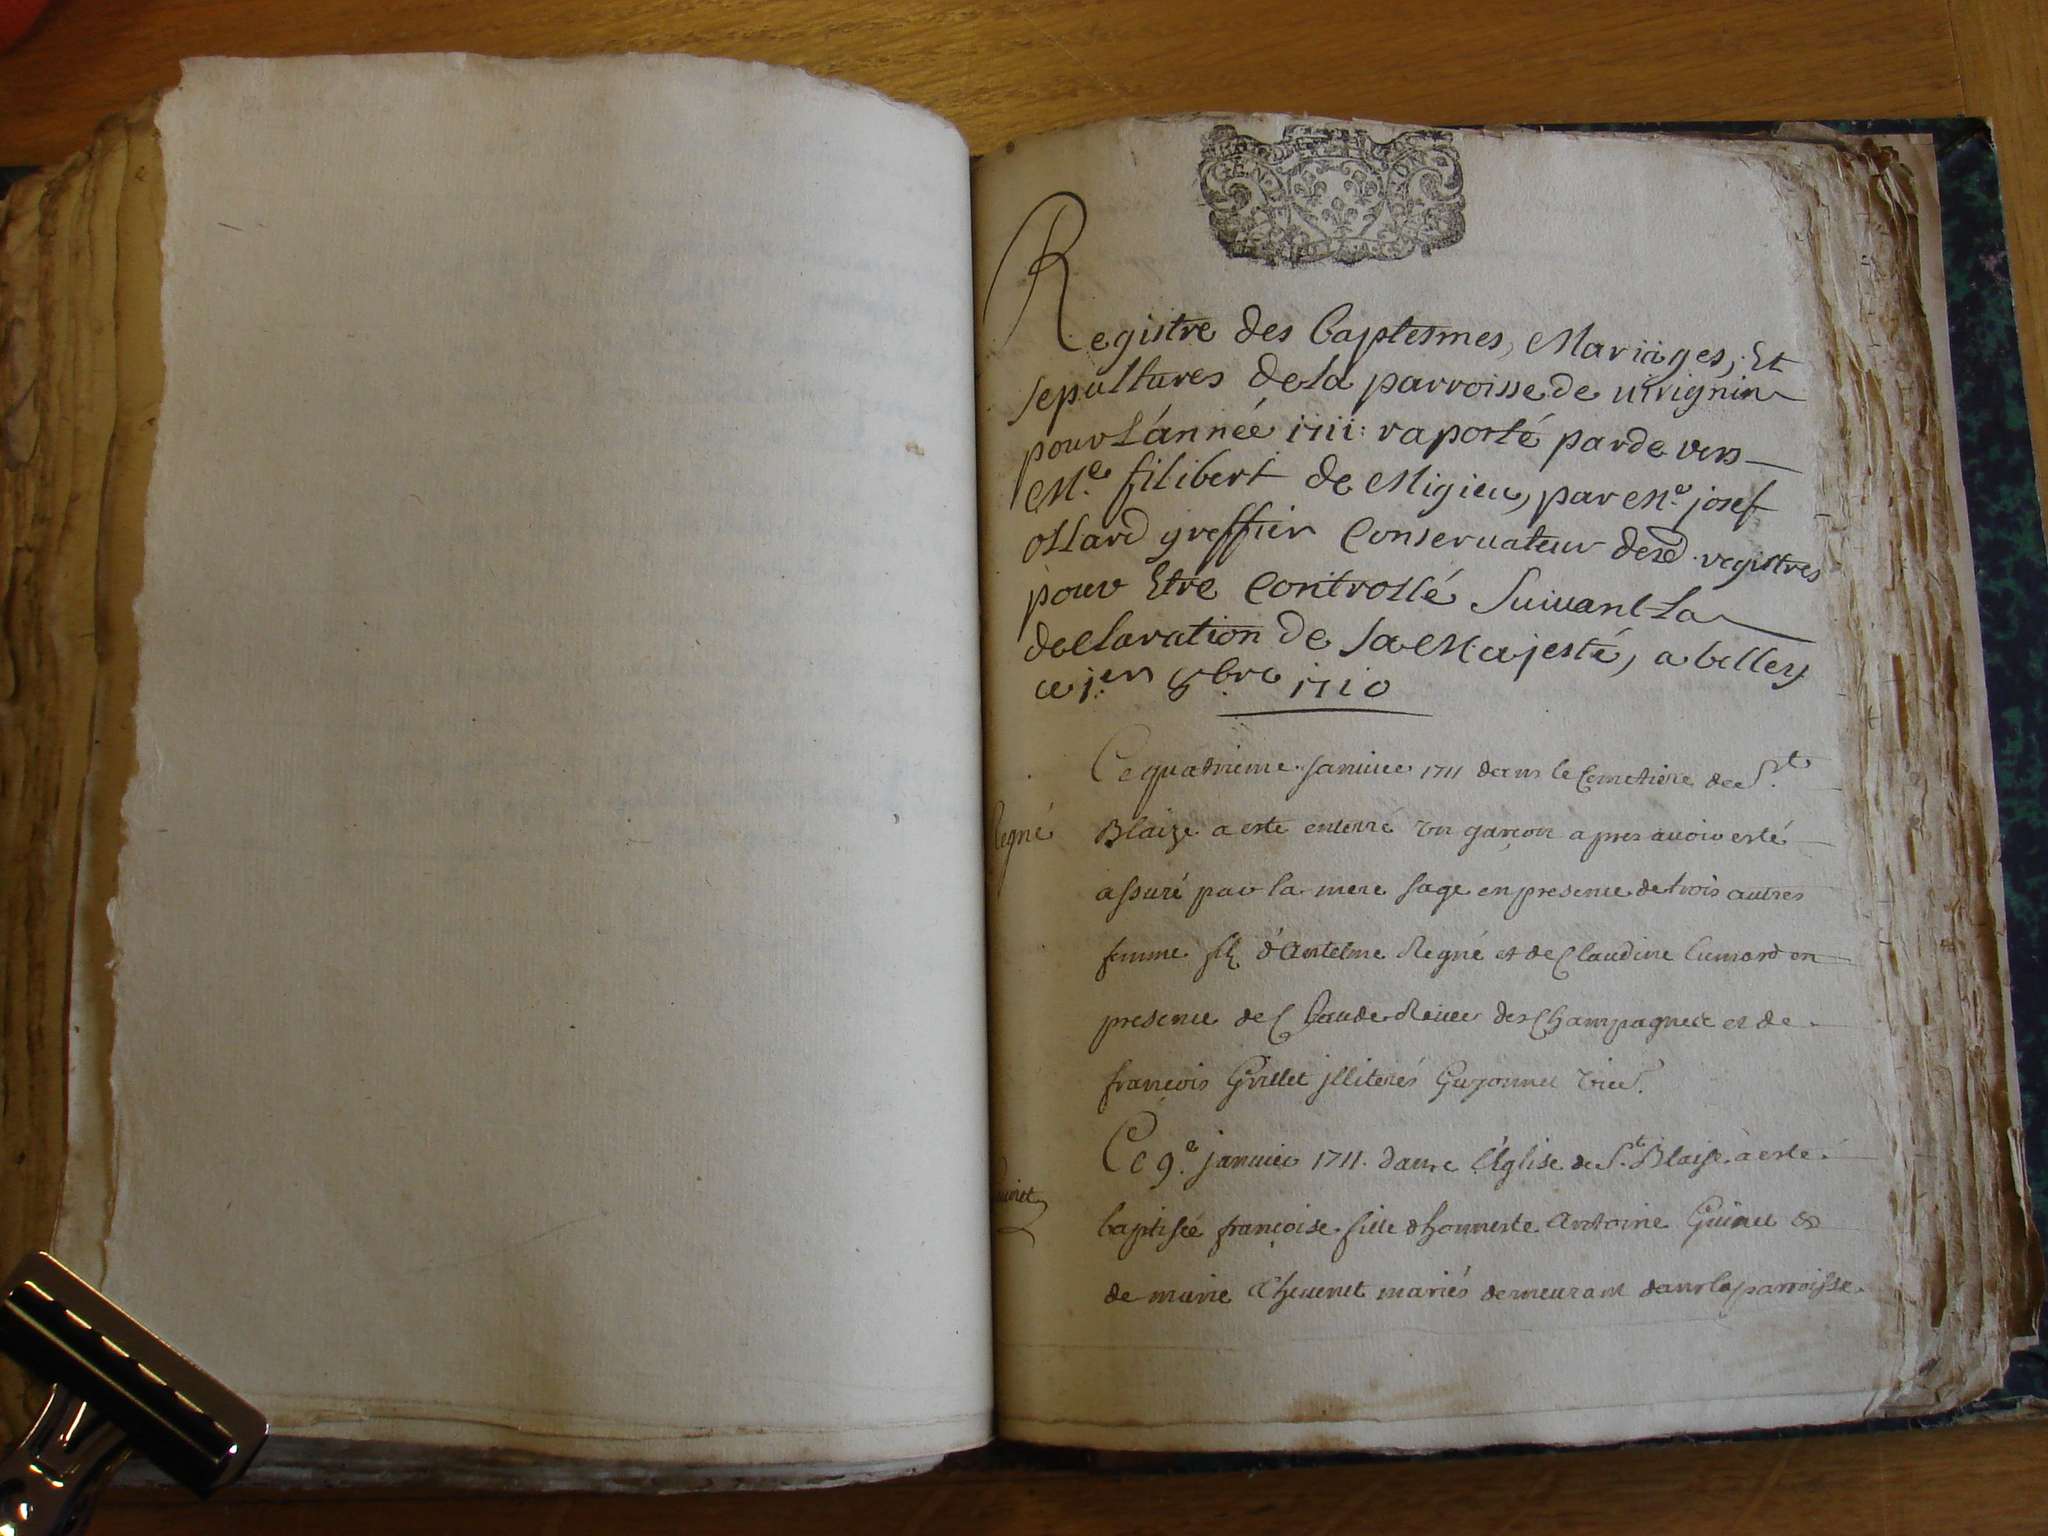 GEN
Registre des baptesmes, Mariages, Et
sepultures dela parroisse de virignin
pour l'année 1711: raporté par de vers
Me. filibert de Migieu, par Me. josef
ollard greffier Conservateur desd. registres
pour Etre Controllé Suivant la
declaration de sa Majesté, a belley
ce 1er. 8bre. 1710
Ce quatrieme Janvier 1711 dans le Cemetiere de St.
Regné
Blaize a esté enterré un garçon apres avoir esté
assuré par la mere sage en presence de trois autres
femme fils d'Antelme Regné et de Claudine Cumard en
presence de Claude des Champagnes et de
françois Grillet jlliterés vice.
Ce 9e. janvier 1711. dans l'Eglise de St. Blaise à esté
baptisée françoise fille d'honneste Antoine Guinet &
de marie Chevenet mariés demeurant dans la parroisse